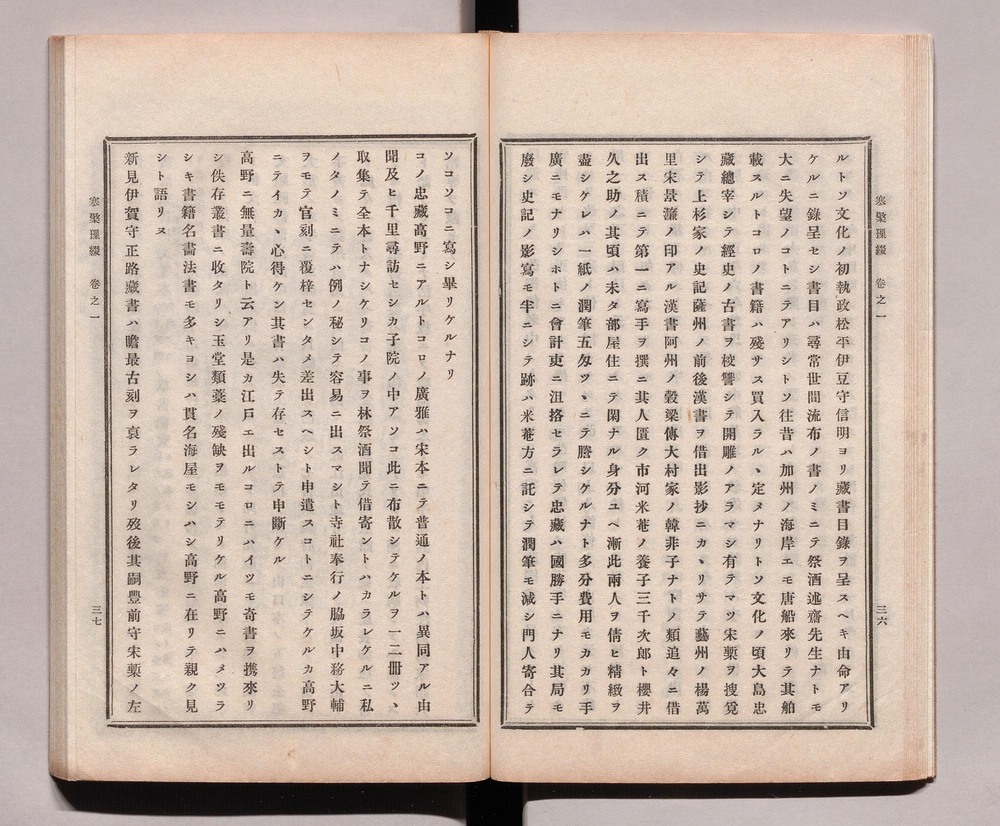 寒檠璅綴　卷之一
三六
ルトソ文化ノ初執政松平伊豆守信明ヨリ藏書目錄ヲ呈スヘキ由命アリ
ケルニ錄呈セシ書目ハ尋常世間流布ノ書ノミニテ祭酒述齋先生ナトモ
大ニ失望ノコトニテアリシトソ往昔ハ加州ノ海岸エモ唐船來リテ其舶
載スルトコロノ書籍ハ殘サス買入ラルヽ定メナリトソ文化ノ頃大島忠
藏總宰シテ經史ノ古書ヲ校讐シテ開雕ノアラマシ有テマツ宋槧ヲ搜覓
シテ上杉家ノ史記薩州ノ前後漢書ヲ借出影抄ニカヽリサテ藝州ノ楊萬
里宋景濂ノ印アル漢書阿州ノ穀梁傳大村家ノ韓非子ナトノ類追々ニ借
出ス積ニテ第一ニ寫手ヲ撰ニ其人匱ク市河米菴ノ養子三千次郎ト櫻井
久之助ノ其頃ハ未タ部屋住ニテ閑ナル身分ユヘ漸此兩人ヲ倩ヒ精緻ヲ
盡シケレハ一紙ノ潤筆五匁ツヽニテ謄シケルナト多分費用モカカリ手
廣ニモナリシホトニ會計吏ニ沮挌セラレテ忠藏ハ國勝手ニナリ其局モ
廢シ史記ノ影寫モ半ニシテ跡ハ米菴方ニ託シテ潤筆モ減シ門人寄合テ
ソコソコニ寫シ畢リケルナリ
コノ忠藏高野ニアルトコロノ廣雅ハ宋本ニテ普通ノ本トハ異同アル由
聞及ヒ千里尋訪セシカ子院ノ中アソコ此ニ布散シテケルヲ一二冊ツヽ
取集テ全本トナシケリコノ事ヲ林祭酒聞テ借寄ントハカラレケルニ私
ノタノミニテハ例ノ秘シテ容易ニ出スマシト寺社奉行ノ脇坂中務大輔
ヲモテ官刻ニ覆梓センタメ差出スヘシト申遣スコトニシテケルカ高野
ニテイカヽ心得ケン其書ハ失テ存セストテ申斷ケル
高野ニ無量壽院ト云アリ是カ江戶エ出ルコロニハイツモ奇書ヲ携來リ
シ佚存叢書ニ收タリシ玉堂類藁ノ殘缺ヲモモテリケル高野ニハメツラ
シキ書籍名畵法書モ多キヨシハ貫名海屋モシハシ高野ニ在リテ親ク見
シト語リヌ
新見伊賀守正路藏書ハ贍最古刻ヲ裒ラレタリ歿後其嗣豐前守宋槧ノ左
寒檠璅綴　卷之一
三七